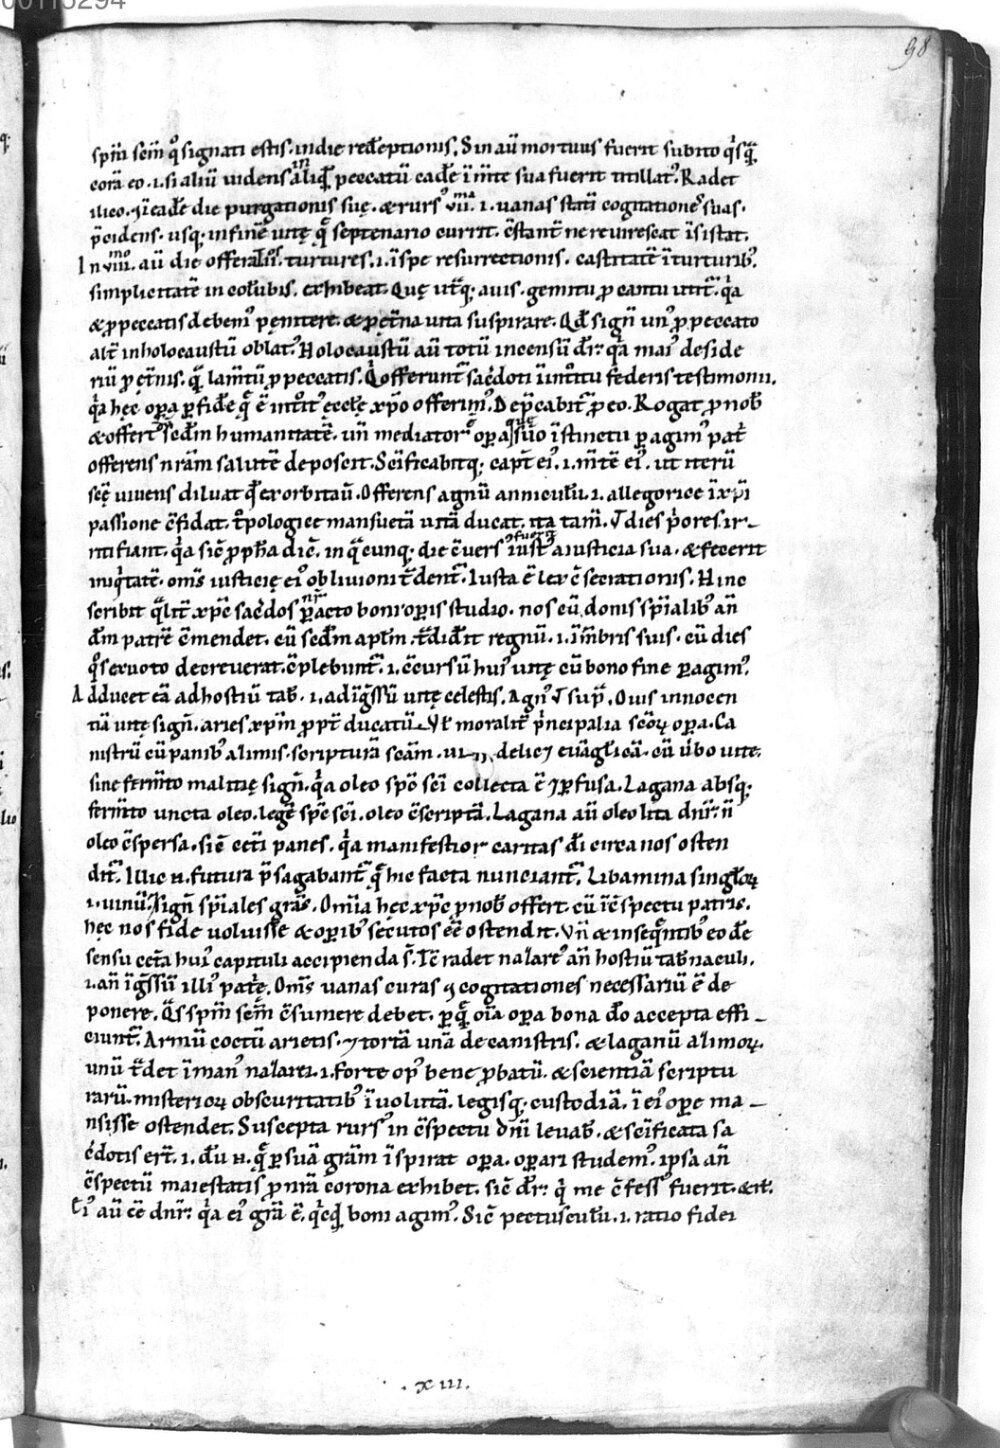 00113294
98
sp̄m sc̄m q̊ signati estis. in die redēptionis. Sin aū mortuus fuerit subito q̇sq̄
corā eo. i. si aliū uidens in aliq̄ peccatū cadē ī m̄te sua fuerit titillatꝰ. Radet
ilico. ī eadē die purgationis suę. & rursꝰ vii.ma i. uanas statī cogitationes suas.
p̄cidens. usq; in finē uitę q̄ septenario currit. c̄stant̄ ne reuirescat īsistat.
In viii.mo aū die offerat turtures. i. ī spe resurrectionis. castitatē ī turturibꝰ.
simplicitatē in colūbis. exhibeat. Quę ut̄q; auis. gemitu p cantu utit̄. q̇a
& p peccatis debemꝰ pęnitere. & p ęt̄na uita suspirare. Qđ sign̄ unꝰ p peccato
alt̄ in holocaustū oblatꝰ. Holocaustū aū totū incensū dr̄: q̇a maiꝰ deside
riū p ęt̄nis. q̄ lam̄tū p peccatis. Q̇ offerunt̄ sac̄doti ī introitu fęderis testimonii.
q̇a hęc opa p fidē q̄ ē introitꝰ ecclę xp̄o offerimꝰ. Dep̄cabit̄ p eo. Rogat p nob̄
& offert sc̄dm humanitatē. un̄ mediator opa que suo īstinctu pagimꝰ pat̄
offerens nr̄am salutē deposcit. Sc̄ificabitq; capt̄ eiꝰ. i. m̄tē eiꝰ. ut iterū
scē uiuens diluat q̄ exorbitaū. Offerens agnū anniculū. i. allegorice ī xp̄i
passione c̄fidat. t̊pologice mansuetā uitā ducat. ita tam̄. ꝟ dies p̄ores ir-
ritifiant. q̇a sic̄ ppha dic̄. in q̄cunq; die c̄uersꝰ fuerit iustꝰ a iusticia sua. & fecerit
iniq̇tatē. om̄s iusticię eiꝰ obliuioni t̄dent̄. Iusta ē lex c̄secrationis. Hinc
scribit q̄lit̄ xp̄c sac̄dos nr̄ pacto boni opis studio. nos cū donis sp̄ialibꝰ an̄
dm̄ patrē c̄mendet. cū sc̄dm apl̄m. t̄didīt regnū. i. ī m̄bris suis. cū dies
q̊s ex uoto decreuerat. c̄plebunt̄. i. c̄cursū huiꝰ uitę cū bono fine pagimꝰ.
Adducet eā ad hostiū tab̄. i. ad īgssū uitę celestis. Agnꝰ ꝟ sup̄. Ouis innocen
tiā uitę sign̄. aries xp̄m p pt̄ ducatū. Vl̄ moralit̄ p̄ncipalia scōꝝ opa. Ca
nistrū cū panibꝰ alimis. scripturā scām. delicę euāglicā. cū ūbo uitę.
sine ferm̄to malitię sign̄. q̇a oleo sp̄c sc̄i collecta ē ⁊ pfusa. Lagana absq;
ferm̄to uncta oleo. legē sp̄c sc̄i. oleo c̄scriptā. Lagana aū oleo lita dnr̄: n̄
oleo c̄spersa. sic̄ cet̄i panes. q̇a manifestior caritas dī circa nos osten
dit̄. Illic n. futura p̄sagabant̄. q̄ hic facta nunciant̄. Libamina singloꝝ
i. uinū. sign̄ sp̄iales grās. Om̄ia hęc xp̄c p nob̄ offert. cū īc̄spectu patris.
hęc nos fide uoluisse & opibꝰ secutos ēe ostendit. Vn̄ & in seq̄ntibꝰ eodē
sensu cet̄a huiꝰ capituli accipienda s̄. Tc̄ radet nazareꝰ an̄ hostiū tab̄naculi.
i. an̄ īgssū illiꝰ patrię. Om̄s uanas curas ⁊ cogitationes necessariū ē de
ponere. Q̄s sp̄m sc̄m c̄sumere debet. p q̄ oīa opa bona dō accepta effi-
ciunt̄. Armū coctū arietis. ⁊ tortā unā de canistris. & laganū alimoꝝ.
unū t̄det ī manꝰ nazarei. i. forte opꝰ bene pbatū. & scientiā scriptu
rarū. misterioꝝ obscuritatibꝰ īuolutā. legisq; custodiā. ī eiꝰ ope ma-
nsisse ostendet. Suscepta rursꝰ in c̄spectu dn̄i leuab̄. & sc̄ificata sa
c̄dotis er̄t. i. dū n. q̄ p suā grām īspirat opa. opari studemꝰ. ipsa an̄
c̄spectū maiestatis p nr̄a corona exhibet. sic̄ dr̄: q̇ me c̄fessꝰ fuerit. & rl̄.
Eiꝰ aū ēe dnr̄: q̇a eiꝰ grā ē. q̇cq̇d boni agimꝰ. Sic̄ pectusculū. i. ratio fidei
. xiii.